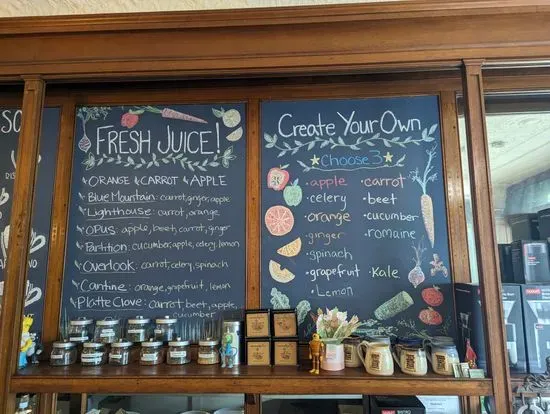 FRESH JUICE!
ORANGE ✿ CARROT ✿ APPLE
Blue Mountain: carrot, ginger, apple
Lighthouse: carrot, orange
OPUS: apple, beet, carrot, ginger
Partition: cucumber, apple, celery, lemon
Overlook: carrot, celery, spinach
Cantine: orange, grapefruit, lemon
Platte Clove: carrot, beet, apple,
cucumber
Create Your Own
Choose 3
• apple • carrot
• celery • beet
• orange • cucumber
• ginger • romaine
• spinach
• grapefruit • Kale
• Lemon